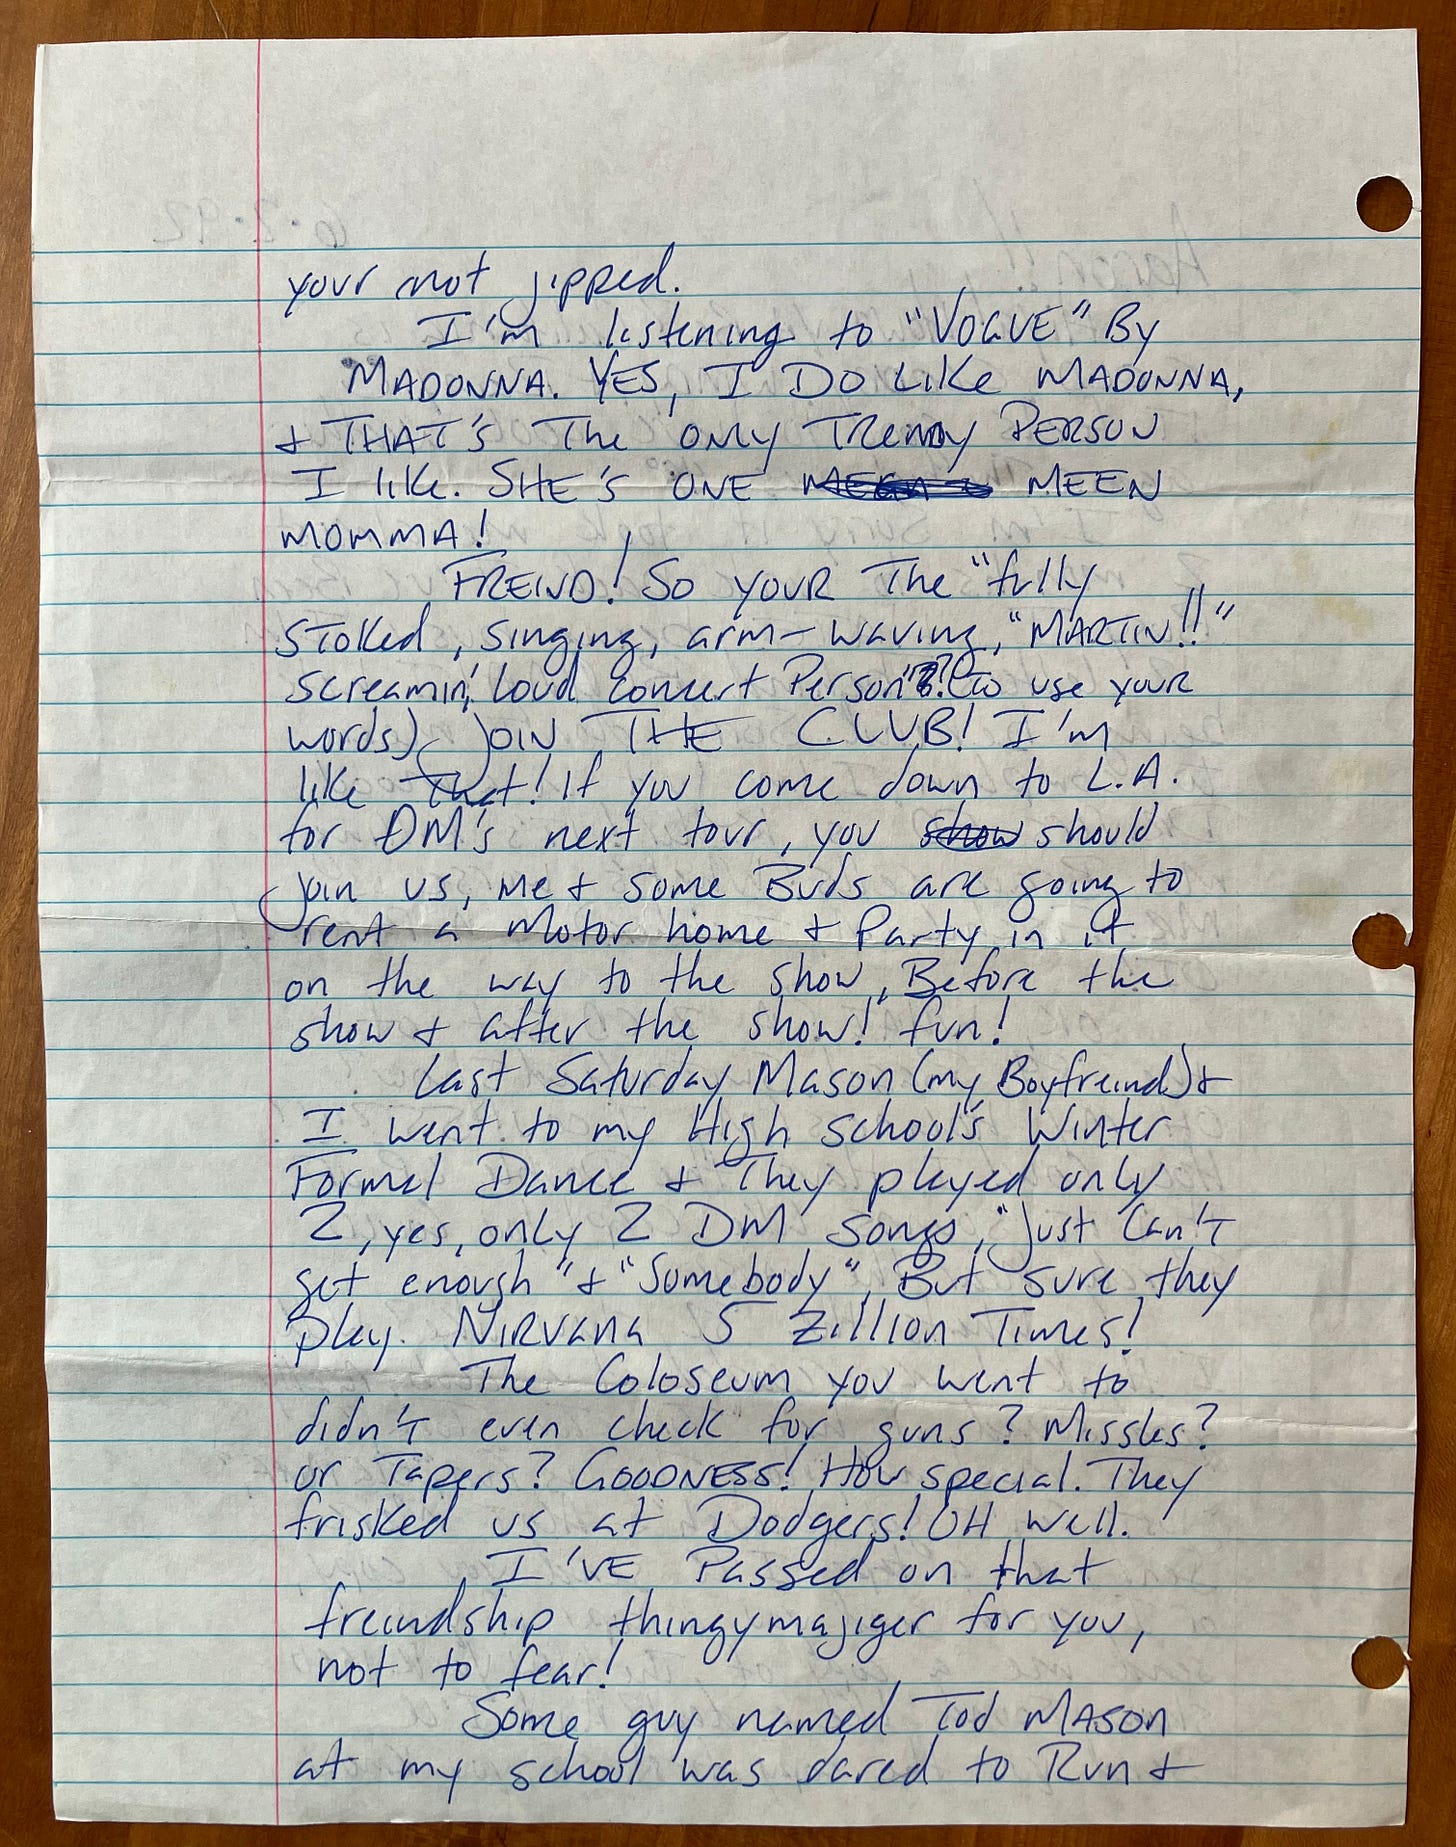 your not jipped.
I'm listening to "VOGUE" By
MADONNA. YES, I DO LIKE MADONNA,
& THAT'S The ONLY TRENDY PERSON
I like. SHE'S ONE MEEN
MOMMA!
FREIND! So YOUR The "fully
STOKed, singing, arm-waving, "MARTIN!!"
screamin', loud concert Person"?(to use your
words) JOIN THE CLUB! I'm
like that! If you come down to L.A.
for DM's next tour, you show should
join us, me & some Buds are going to
rent a Motor home & Party in it
on the way to the show, Before the
show & after the show! fun!
Last Saturday Mason (my Boyfreind) &
I went to my High school's Winter
Formal Dance & They played only
2, yes, only 2 DM songs, "Just Can't
get enough" & "Somebody". But sure they
play NIRVANA 5 Zillion Times!
The Coloseum you went to
didn't even check for guns? Missles?
or Tapers? GOODNESS! How special. They
frisked us at Dodgers! OH well.
I'VE Passed on that
freindship thingymajiger for you,
not to fear!
Some guy named Tod MASON
at my school was dared to Run &